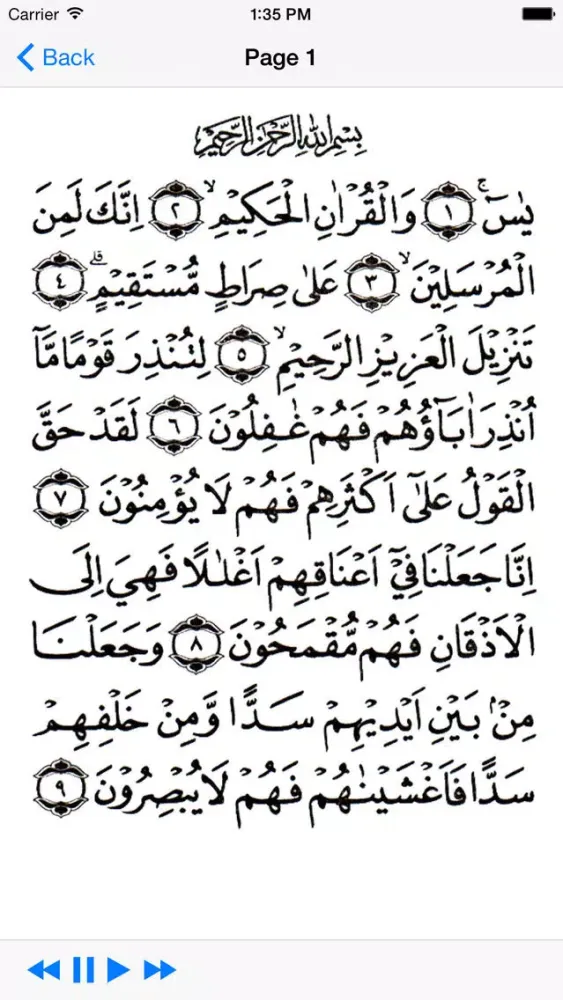 Carrier 1:35 PM
Back Page 1
بِسْمِ اللهِ الرَّحْمٰنِ الرَّحِيْمِ
يٰسٓ ۚ ﴿١﴾ وَالْقُرْاٰنِ الْحَكِيْمِ ۙ ﴿٢﴾ اِنَّكَ لَمِنَ
الْمُرْسَلِيْنَ ۙ ﴿٣﴾ عَلٰى صِرَاطٍ مُّسْتَقِيْمٍ ۗ ﴿٤﴾
تَنْزِيْلَ الْعَزِيْزِ الرَّحِيْمِ ۙ ﴿٥﴾ لِتُنْذِرَ قَوْمًا مَّآ
اُنْذِرَ اٰبَآؤُهُمْ فَهُمْ غٰفِلُوْنَ ﴿٦﴾ لَقَدْ حَقَّ
الْقَوْلُ عَلٰٓى اَكْثَرِهِمْ فَهُمْ لَا يُؤْمِنُوْنَ ﴿٧﴾
اِنَّا جَعَلْنَا فِيْٓ اَعْنَاقِهِمْ اَغْلٰلًا فَهِيَ اِلَى
الْاَذْقَانِ فَهُمْ مُّقْمَحُوْنَ ﴿٨﴾ وَجَعَلْنَا
مِنْۢ بَيْنِ اَيْدِيْهِمْ سَدًّا وَّمِنْ خَلْفِهِمْ
سَدًّا فَاَغْشَيْنٰهُمْ فَهُمْ لَا يُبْصِرُوْنَ ﴿٩﴾